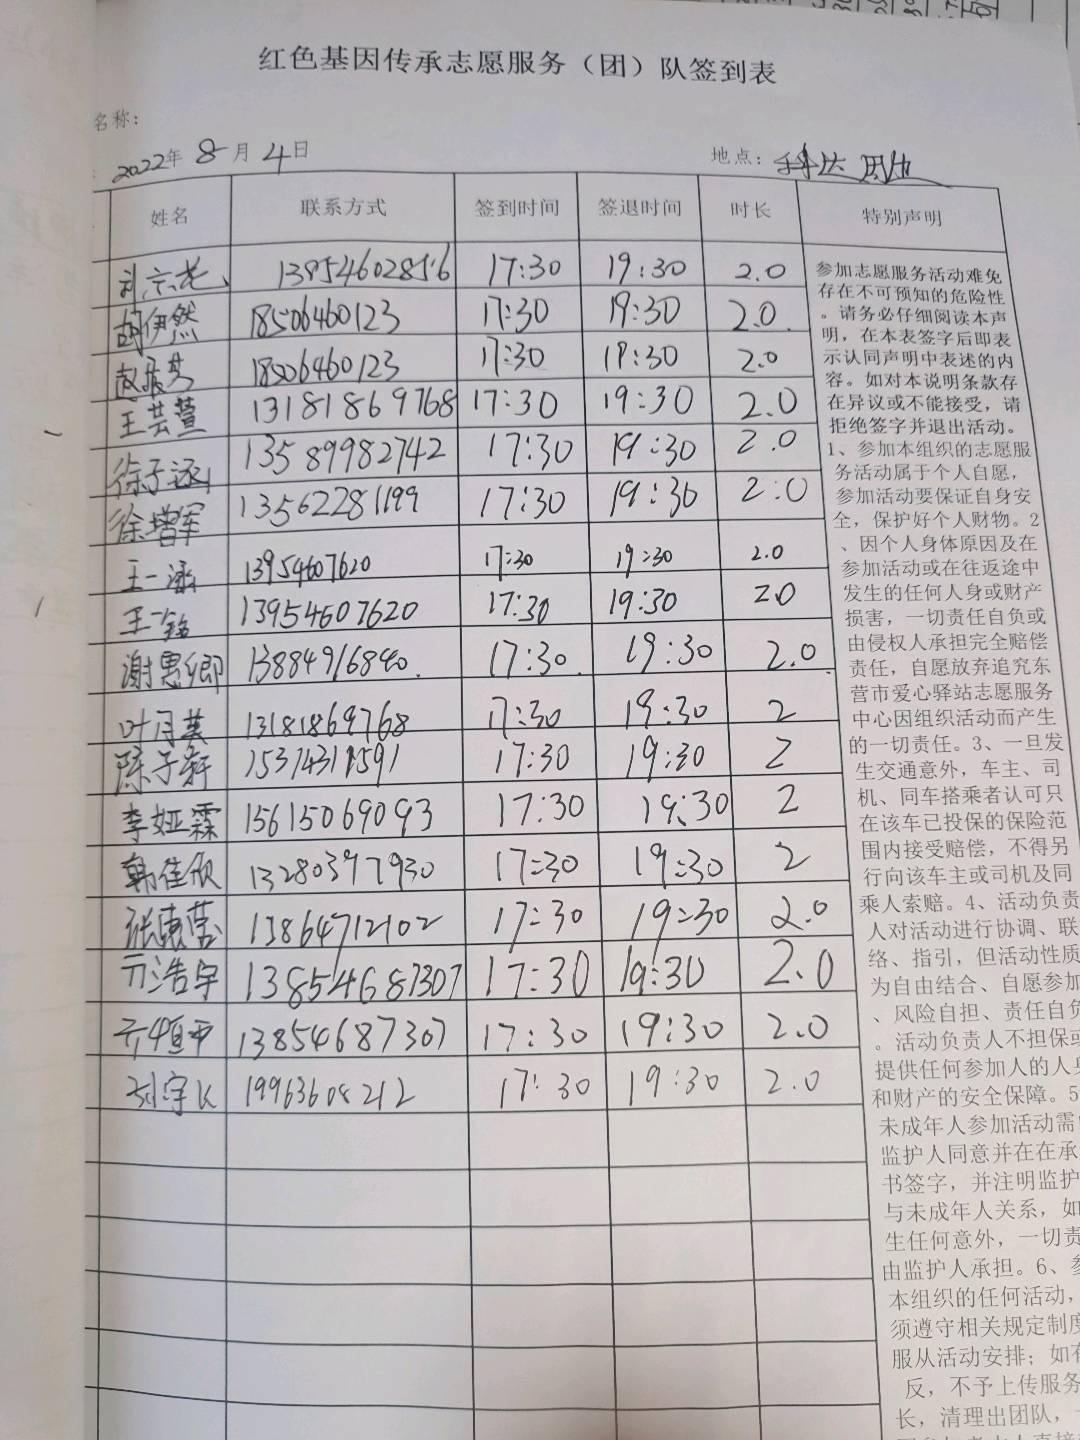 红色基因传承志愿服务（团）队签到表
名称：
2022年 8 月 4 日 地点：
姓名 联系方式 签到时间 签退时间 时长 特别声明
13954602856 17:30 19:30 2.0
胡伊然 18506460123 17:30 19:30 2.0
18506460123 17:30 19:30 2.0
王芸萱 13181869768 17:30 19:30 2.0
徐子涵 13589982742 17:30 19:30 2.0
徐增军 13562281199 17:30 19:30 2:0
王一涵 13954607620 17:30 19:30 2.0
王一铭 13954607620 17:30 19:30 2.0
谢惠卿 13884916840. 17:30. 19:30 2.0
叶月英 13181869768 17:30 19:30 2
陈子轩 17:30 19:30 2
李娅霖 15615069093 17:30 19:30 2
韩佳欣 13280397930 17:30 19:30 2
张惠莹 13864712102 17:30 19:30 2.0
亓浩宇 13854687307 17:30 19:30 2.0
13854687307 17:30 19:30 2.0
19963608212 17:30 19:30 2.0
参加志愿服务活动难免
存在不可预知的危险性
。请务必仔细阅读本声
明，在本表签字后即表
示认同声明中表述的内
容。如对本说明条款存
在异议或不能接受，请
拒绝签字并退出活动。
1、参加本组织的志愿服
务活动属于个人自愿，
参加活动要保证自身安
全，保护好个人财物。2
、因个人身体原因及在
参加活动或在往返途中
发生的任何人身或财产
损害，一切责任自负或
由侵权人承担完全赔偿
责任，自愿放弃追究东
营市爱心驿站志愿服务
中心因组织活动而产生
的一切责任。3、一旦发
生交通意外，车主、司
机、同车搭乘者认可只
在该车已投保的保险范
围内接受赔偿，不得另
行向该车主或司机及同
乘人索赔。4、活动负责
人对活动进行协调、联
络、指引，但活动性质
为自由结合、自愿参加
、风险自担、责任自负
。活动负责人不担保或
提供任何参加人的人身
和财产的安全保障。5
未成年人参加活动需
监护人同意并在在承
书签字，并注明监护
与未成年人关系，如
生任何意外，一切责
由监护人承担。6、参
本组织的任何活动，
须遵守相关规定制度
服从活动安排；如有
反，不予上传服务
长，清理出团队，